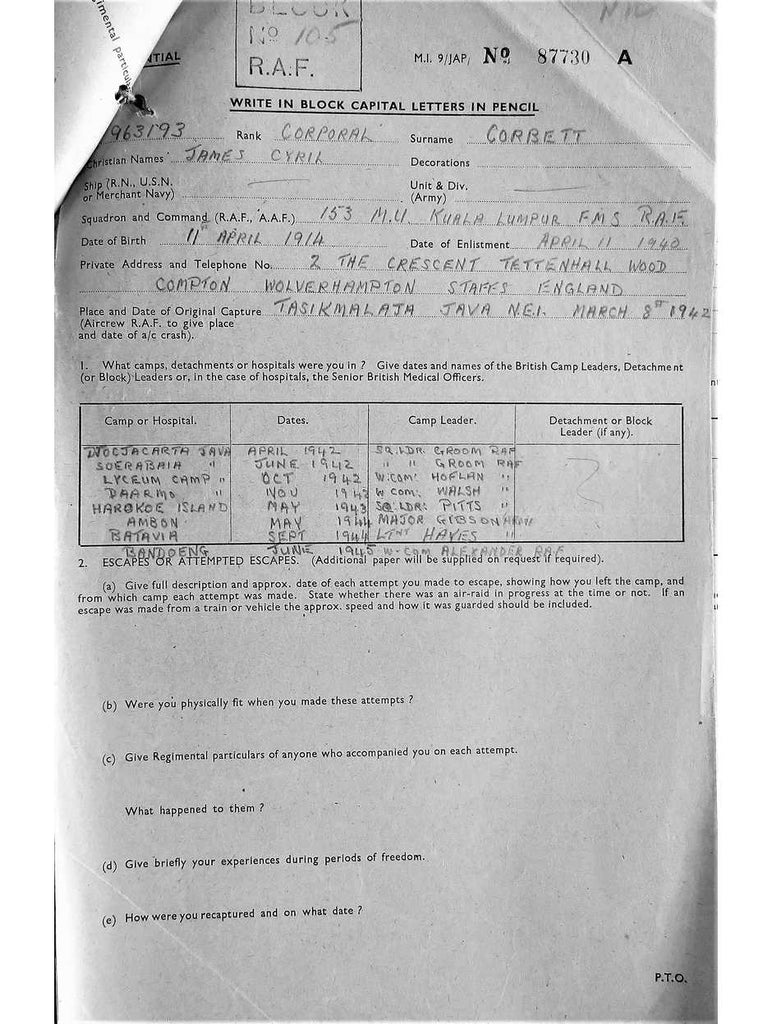 imental particul
NTIAL
BLOCK
Nº 105
R.A.F.
M.I. 9/JAP/ Nº 87730 A
WRITE IN BLOCK CAPITAL LETTERS IN PENCIL
963193 Rank CORPORAL Surname CORBETT
Christian Names JAMES CYRIL Decorations
Ship (R.N., U.S.N. or Merchant Navy) — Unit & Div. (Army) —
Squadron and Command (R.A.F., A.A.F.) 153 M.U. KUALA LUMPUR F.M.S R.A.F.
Date of Birth 11th APRIL 1914 Date of Enlistment APRIL 11 1940
Private Address and Telephone No. 2 THE CRESCENT TETTENHALL WOOD
COMPTON WOLVERHAMPTON STAFFS ENGLAND
Place and Date of Original Capture TASIKMALAJA JAVA N.E.I. MARCH 8th 1942
(Aircrew R.A.F. to give place
and date of a/c crash).
1. What camps, detachments or hospitals were you in ? Give dates and names of the British Camp Leaders, Detachment
(or Block) Leaders or, in the case of hospitals, the Senior British Medical Officers.
Camp or Hospital. Dates. Camp Leader. Detachment or Block Leader (if any).
DJOCJACARTA JAVA APRIL 1942 SQ.LDR. GROOM RAF
SOERABAIA " JUNE 1942 " " GROOM RAF
LYCEUM CAMP " OCT 1942 W.COM: HOFLAN "
DAARMO " NOV W COM: WALSH "
HAROKOE ISLAND MAY 1943 SQ.LDR: PITTS "
AMBON MAY 1944 MAJOR GIBSON
BATAVIA SEPT 1944 LTNT HAYES "
BANDOENG JUNE 1945 W-COM ALEXANDER RAF
2. ESCAPES OR ATTEMPTED ESCAPES. (Additional paper will be supplied on request if required).
(a) Give full description and approx. date of each attempt you made to escape, showing how you left the camp, and
from which camp each attempt was made. State whether there was an air-raid in progress at the time or not. If an
escape was made from a train or vehicle the approx. speed and how it was guarded should be included.
(b) Were you physically fit when you made these attempts ?
(c) Give Regimental particulars of anyone who accompanied you on each attempt.
What happened to them ?
(d) Give briefly your experiences during periods of freedom.
(e) How were you recaptured and on what date ?
P.T.O.